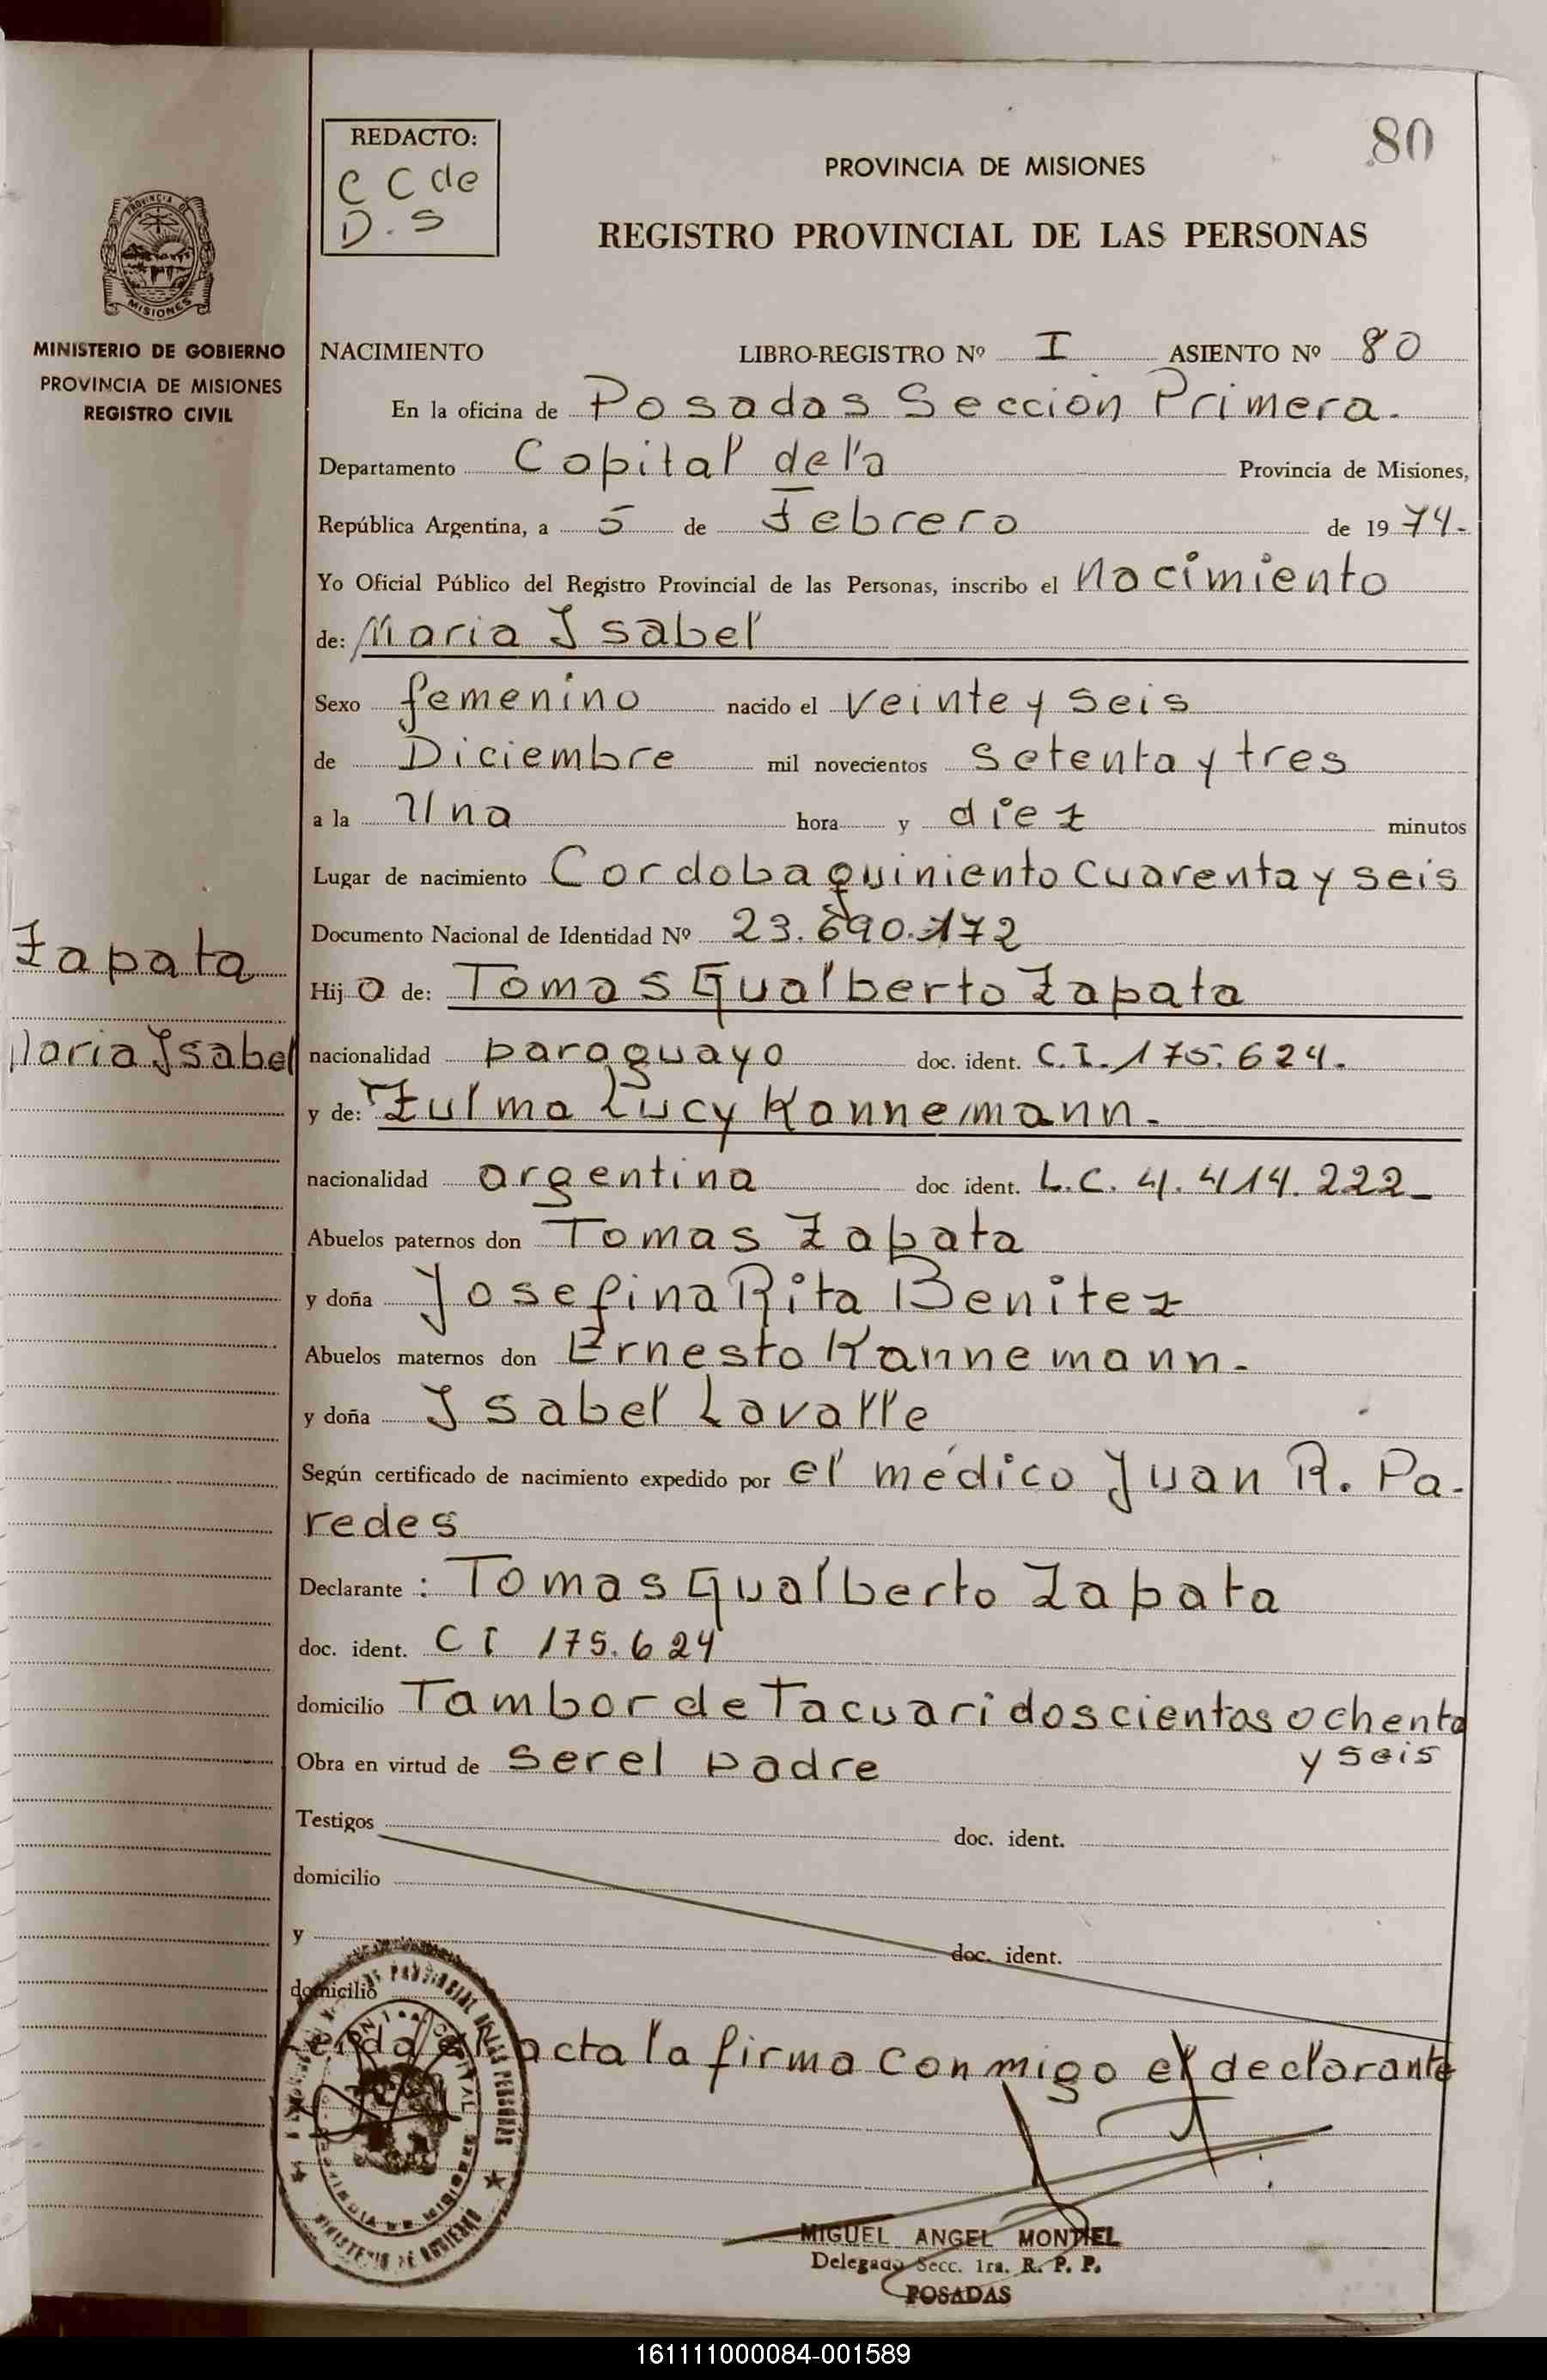 REDACTO:
C C de
D. S
80
PROVINCIA DE MISIONES
REGISTRO PROVINCIAL DE LAS PERSONAS
PROVINCIA DE
MISIONES
MINISTERIO DE GOBIERNO
PROVINCIA DE MISIONES
REGISTRO CIVIL
NACIMIENTO LIBRO-REGISTRO Nº I ASIENTO Nº 80
En la oficina de Posadas Sección Primera.
Departamento Capital de la Provincia de Misiones,
República Argentina, a 5 de Febrero de 1974.
Yo Oficial Público del Registro Provincial de las Personas, inscribo el Nacimiento
de: Maria Isabel
Sexo femenino nacido el veinte y seis
de Diciembre mil novecientos setenta y tres
a la Una hora y diez minutos
Lugar de nacimiento Cordoba quiniento cuarenta y seis
Documento Nacional de Identidad Nº 23.690.172
Zapata
Maria Isabel
Hija de: Tomas Gualberto Zapata
nacionalidad paraguayo doc. ident. C.I. 175.624.
y de: Zulma Lucy Kannemann.
nacionalidad argentina doc. ident. L.C. 4.414.222
Abuelos paternos don Tomas Zapata
y doña Josefina Rita Benitez
Abuelos maternos don Ernesto Kannemann.
y doña Isabel Lavalle
Según certificado de nacimiento expedido por el médico Juan R. Pa-
redes
Declarante: Tomas Gualberto Zapata
doc. ident. C I 175.624
domicilio Tambor de Tacuari doscientos ochenta
y seis
Obra en virtud de ser el padre
Testigos doc. ident.
domicilio
y doc. ident.
domicilio
Leida el acta la firma conmigo el declarante
MIGUEL ANGEL MONTIEL
Delegado Secc. 1ra. R. P. P.
POSADAS
161111000084-001589